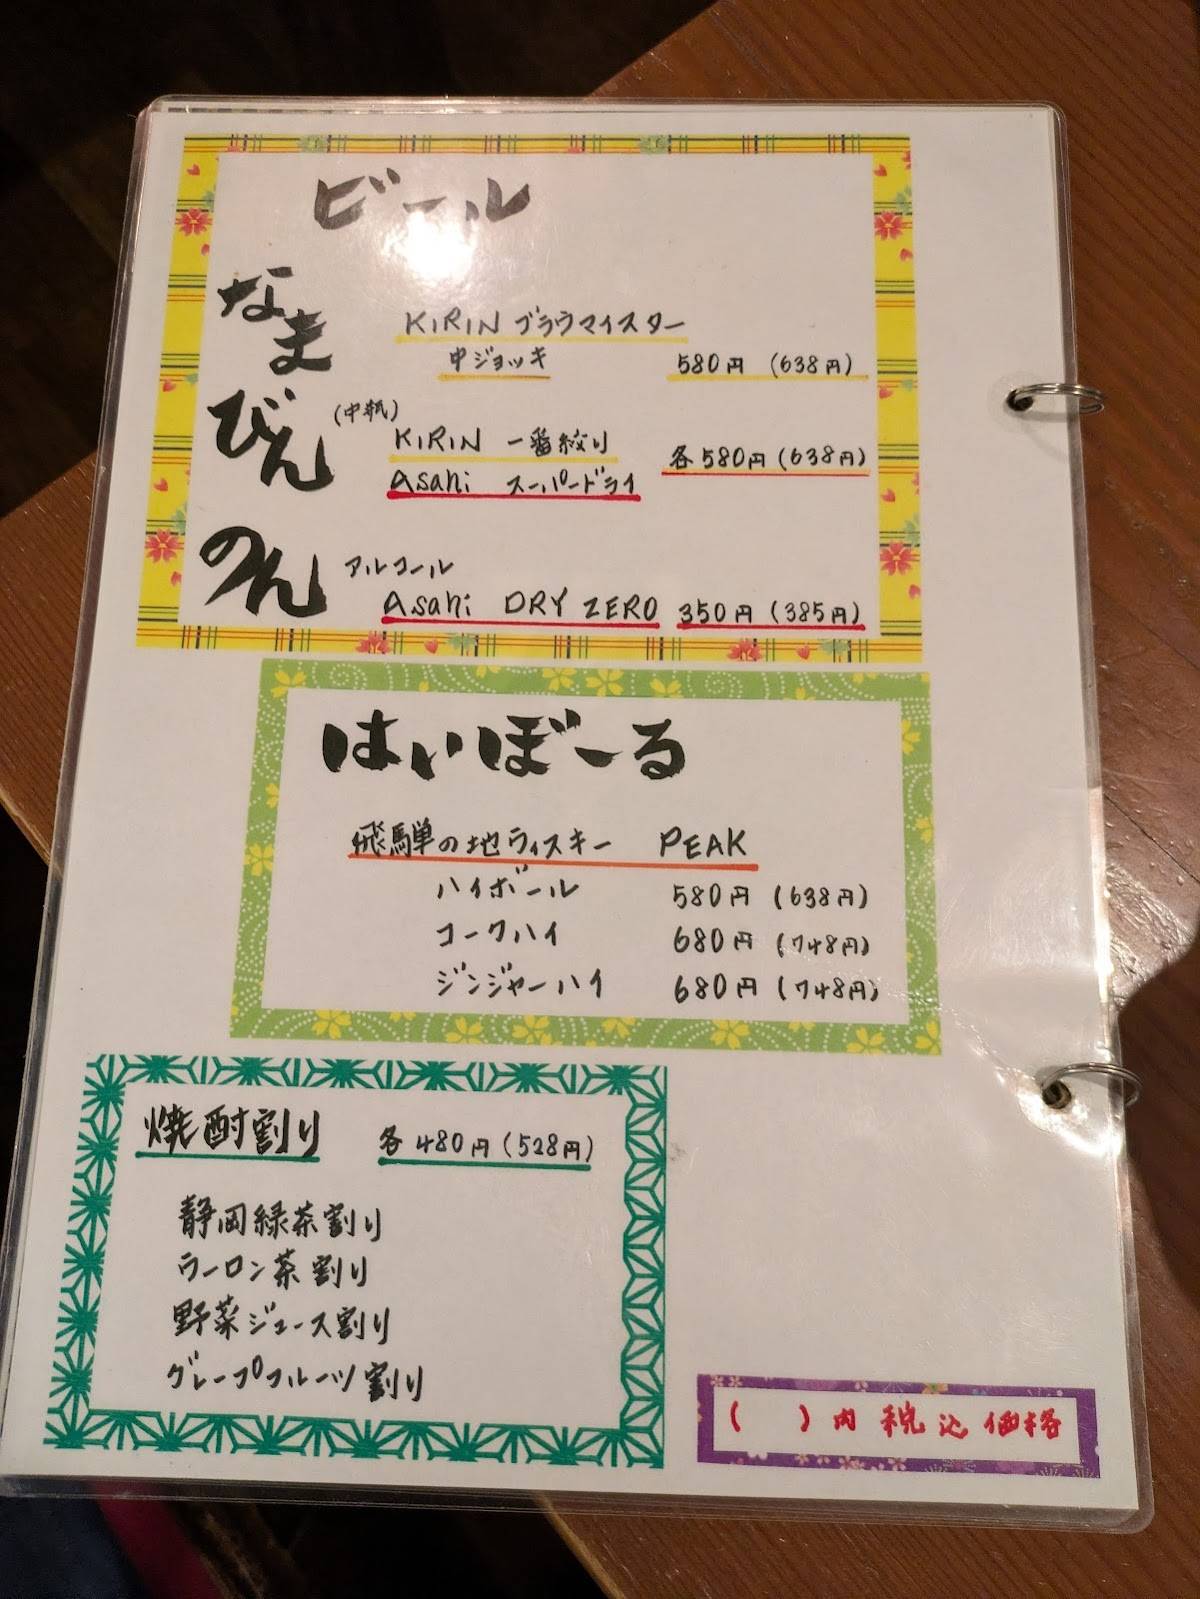 ビール
なま
KIRIN ブラウマイスター
中ジョッキ 580円 (638円)
びん (中瓶)
KIRIN 一番絞り
Asahi スーパードライ
各580円(638円)
のん アルコール
Asahi DRY ZERO 350円(385円)
はいぼーる
飛騨の地ウィスキー PEAK
ハイボール 580円 (638円)
コークハイ 680円 (748円)
ジンジャーハイ 680円 (748円)
焼酎割り 各480円(528円)
静岡緑茶割り
ウーロン茶割り
野菜ジュース割り
グレープフルーツ割り
( )内税込価格